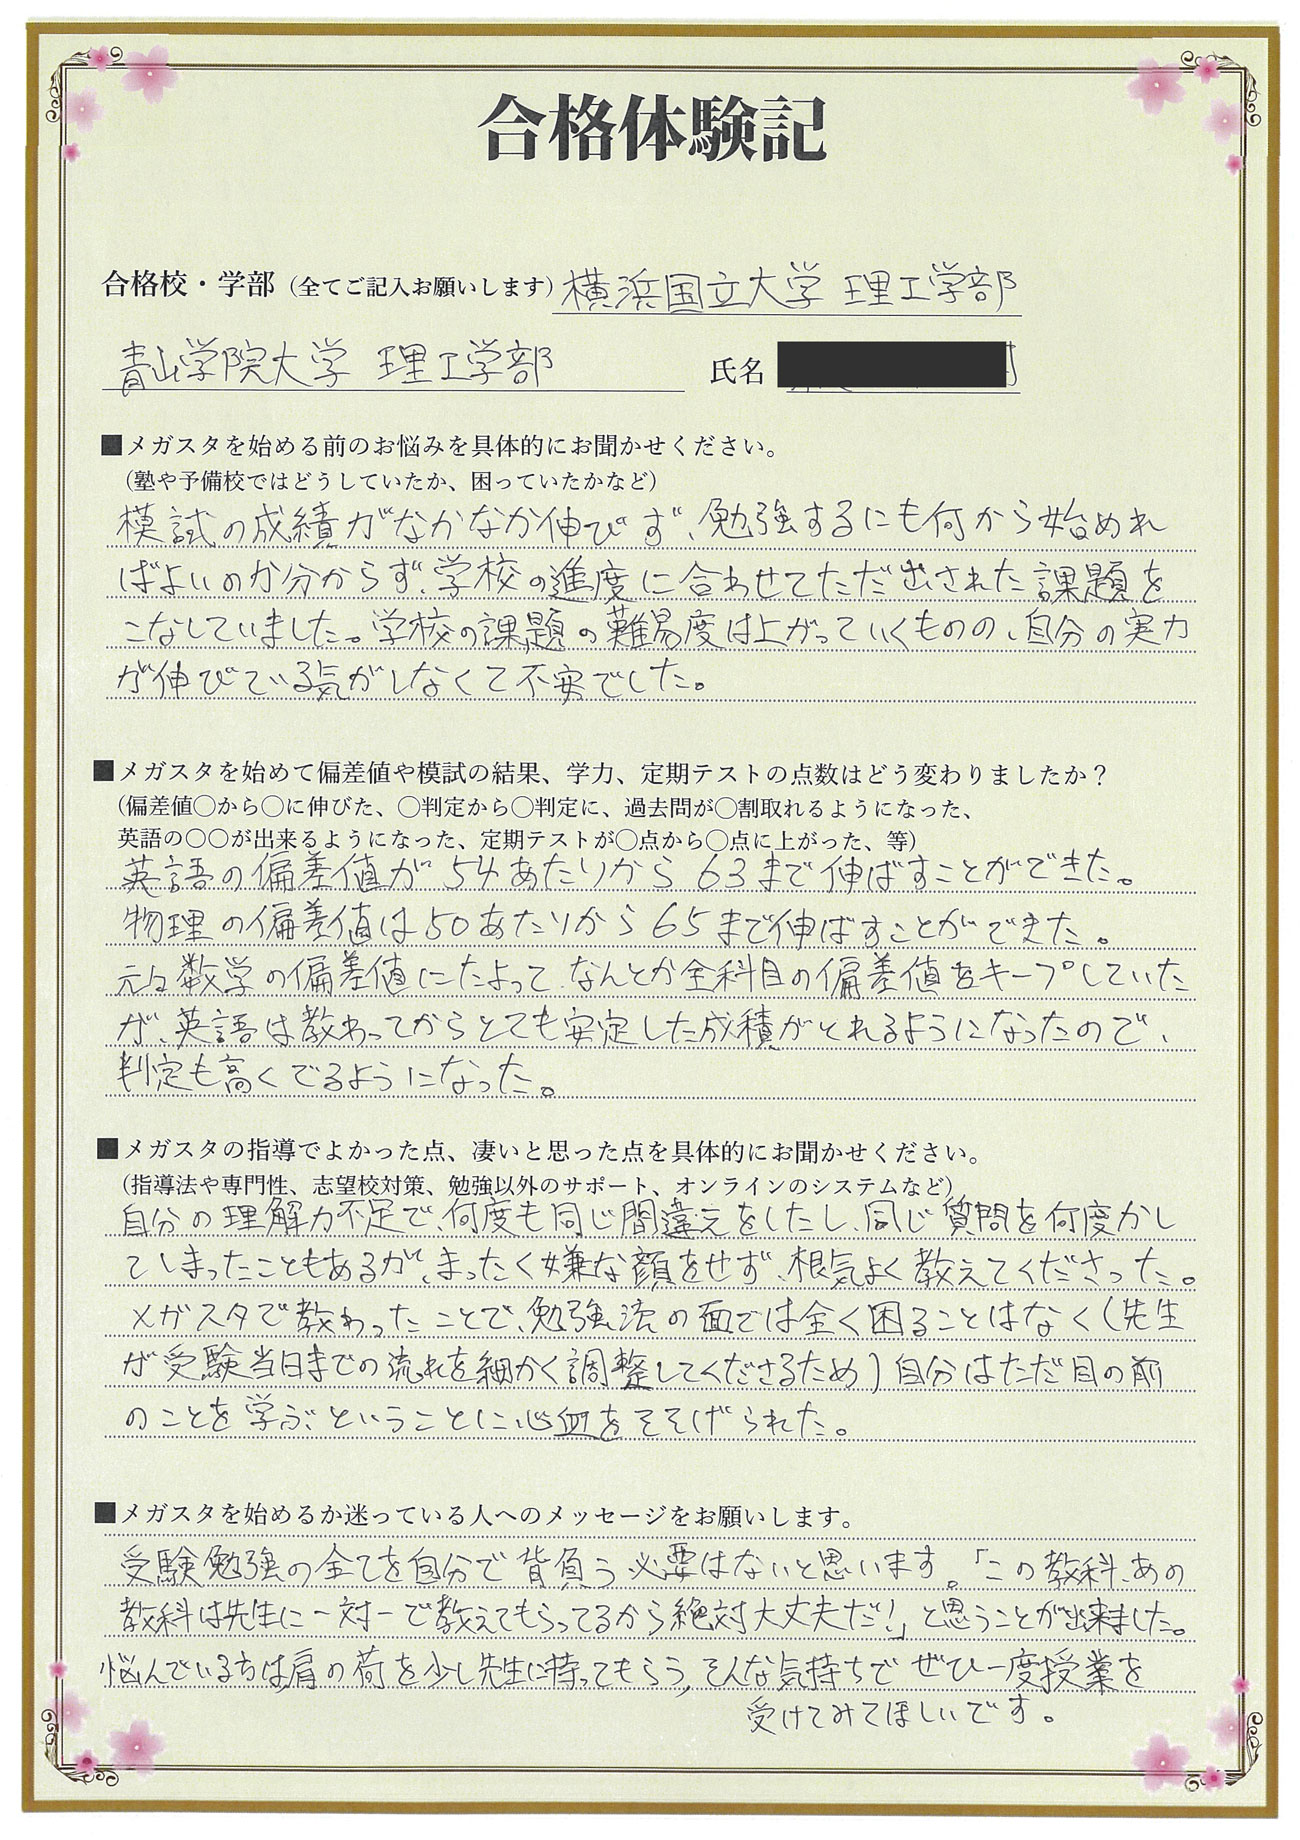 合格体験記
合格校・学部（全てご記入お願いします）横浜国立大学 理工学部
青山学院大学 理工学部 氏名
■メガスタを始める前のお悩みを具体的にお聞かせください。
（塾や予備校ではどうしていたか、困っていたかなど）
模試の成績がなかなか伸びず、勉強するにも何から始めれ
ばよいのか分からず、学校の進度に合わせてただ出された課題を
こなしていました。学校の課題の難易度は上がっていくものの、自分の実力
が伸びている気がしなくて不安でした。
■メガスタを始めて偏差値や模試の結果、学力、定期テストの点数はどう変わりましたか？
（偏差値〇から〇に伸びた、〇判定から〇判定に、過去問が〇割取れるようになった、
英語の〇〇が出来るようになった、定期テストが〇点から〇点に上がった、等）
英語の偏差値が54あたりから63まで伸ばすことができた。
物理の偏差値は50あたりから65まで伸ばすことができた。
元々数学の偏差値にたよって、なんとか全科目の偏差値をキープしていた
が、英語は教わってからとても安定した成積がとれるようになったので、
判定も高くでるようになった。
■メガスタの指導でよかった点、凄いと思った点を具体的にお聞かせください。
（指導法や専門性、志望校対策、勉強以外のサポート、オンラインのシステムなど）
自分の理解力不足で、何度も同じ間違えをしたし、同じ質問を何度かし
てしまったこともあるが、まったく嫌な顔をせず、根気よく教えてくださった。
メガスタで教わったことで、勉強法の面では全く困ることはなく（先生
が受験当日までの流れを細かく調整してくださるため）自分はただ目の前
のことを学ぶということに心血をそそげられた。
■メガスタを始めるか迷っている人へのメッセージをお願いします。
受験勉強の全てを自分で背負う必要はないと思います。「この教科、あの
教科は先生に一対一で教えてもらってるから絶対大丈夫だ!」と思うことが出来ました。
悩んでいる方は肩の荷を少し先生に持ってもらう、そんな気持ちでぜひ一度授業を
受けてみてほしいです。